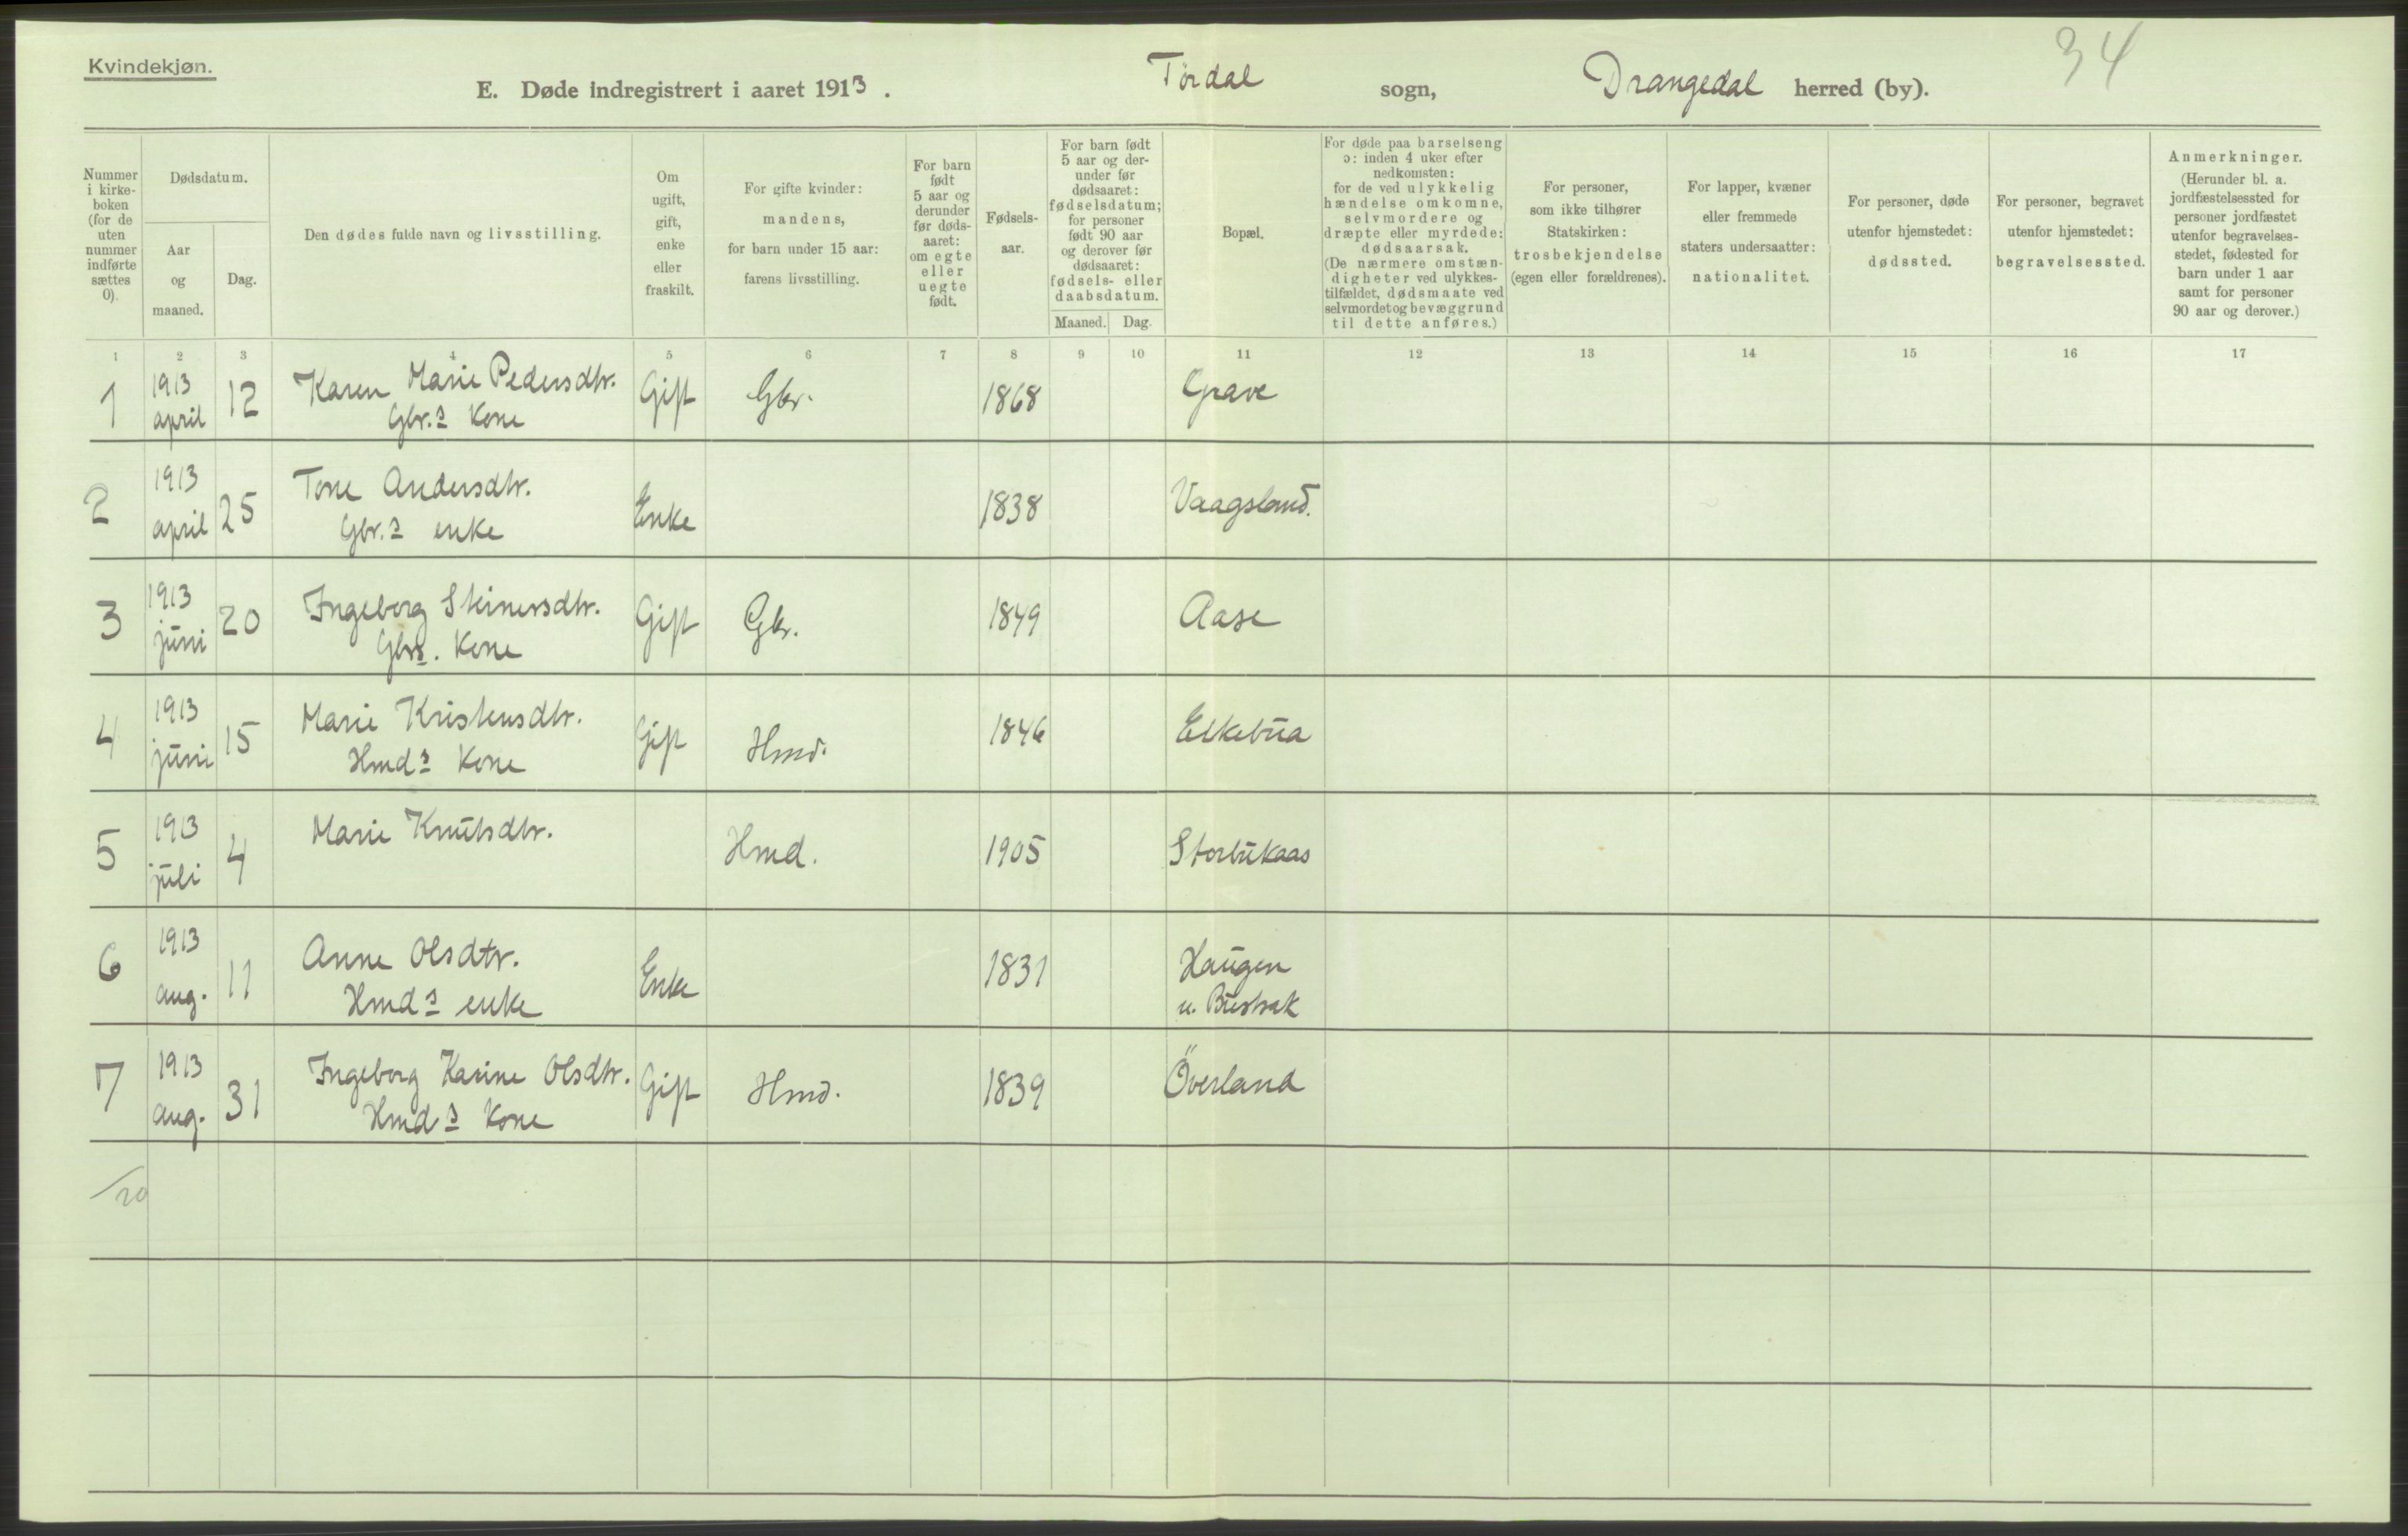 34
Kvindekjøn.
E. Døde indregistrert i aaret 1913.
Tørdal sogn, Drangedal herred (by).
Nummer i kirke-boken (for de uten nummer indførte sættes 0).
Dødsdatum.
Aar og maaned.
Dag.
Den dødes fulde navn og livsstilling.
Om ugift, gift, enke eller fraskilt.
For gifte kvinder: mandens, for barn under 15 aar: farens livsstilling.
For barn født 5 aar og derunder før døds-aaret: om egte eller uegte født.
Fødsels-aar.
For barn født 5 aar og der-under før dødsaaret: fødselsdatum; for personer født 90 aar og derover før dødsaaret: fødsels- eller daabsdatum.
Maaned. Dag.
Bopæl.
For døde paa barselseng ɔ: inden 4 uker efter nedkomsten: for de ved ulykkelig hændelse omkomne, selvmordere og dræpte eller myrdede: dødsaarsak. (De nærmere omstæn-digheter ved ulykkes-tilfældet, dødsmaate ved selvmordet og bevæggrund til dette anføres.)
For personer, som ikke tilhører Statskirken: trosbekjendelse (egen eller forældrenes).
For lapper, kvæner eller fremmede staters undersaatter: nationalitet.
For personer, døde utenfor hjemstedet: dødssted.
For personer, begravet utenfor hjemstedet: begravelsessted.
Anmerkninger. (Herunder bl. a. jordfæstelsessted for personer jordfæstet utenfor begravelses-stedet, fødested for barn under 1 aar samt for personer 90 aar og derover.)
1 2 3 4 5 6 7 8 9 10 11 12 13 14 15 16 17
1 1913 april 12 Karen Marie Pedersdtr. Gift Gbr. 1868 Grave
Gbr.s Kone
2 1913 april 25 Tone Andersdtr. Enke 1838 Vaagsland.
Gbr.s enke
3 1913 juni 20 Ingeborg Steinersdtr. Gift Gbr. 1849 Aase
Gbrs. Kone
4 1913 juni 15 Marie Kristensdtr. Gift Hmd. 1846 Eikebua
Hmds Kone
5 1913 juli 4 Marie Knutsdtr. Hmd. 1905 Storbukaas
6 1913 aug. 11 Anne Olsdtr. Enke 1831 Haugen
Hmds enke u.
7 1913 aug. 31 Ingeborg Karine Olsdtr. Gift Hmd. 1839 Överland
Hmds Kone
/20